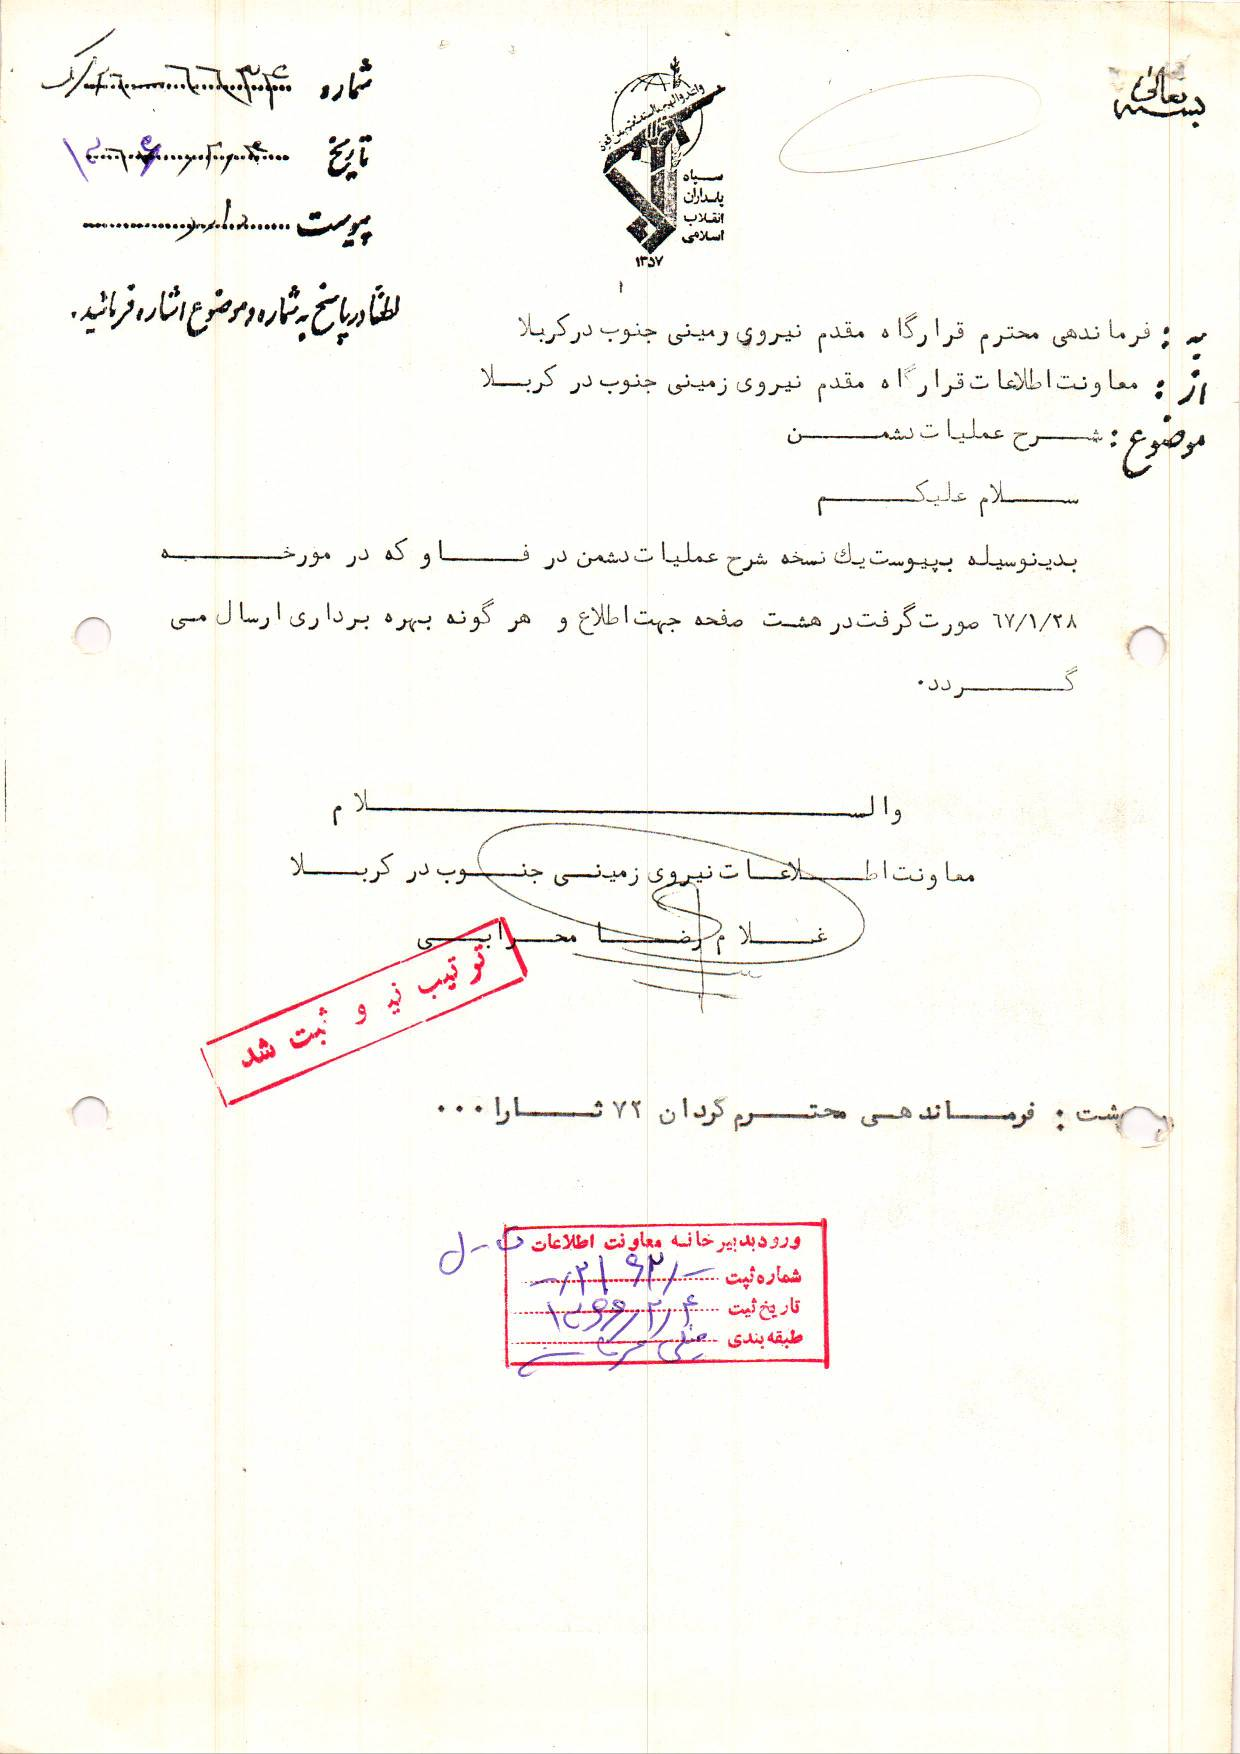 بسمه تعالی
شماره
تاریخ
پیوست دارد
لطفاً در پاسخ به شماره و موضوع اشاره فرمائید.
سپاه
پاسداران
انقلاب
اسلامی
۱۳۵۷
به : فرماندهی محترم قرارگاه مقدم نیروی زمینی جنوب در کربلا
از : معاونت اطلاعات قرارگاه مقدم نیروی زمینی جنوب در کربلا
موضوع : شرح عملیات دشمن
سلام علیکم
بدینوسیله بپیوست یک نسخه شرح عملیات دشمن در فاو که در مورخه
۶۷/۱/۲۸ صورت گرفت در هشت صفحه جهت اطلاع و هر گونه بهره برداری ارسال می
گردد.
والسلام
معاونت اطلاعات نیروی زمینی جنوب در کربلا
غلامرضا محرابی
ثبت شد
فرماندهی محترم گردان ۷۲ ثارا...
ورود بدبیرخانه معاونت اطلاعات
شماره ثبت
تاریخ ثبت
طبقه بندی خیلی محرمانه